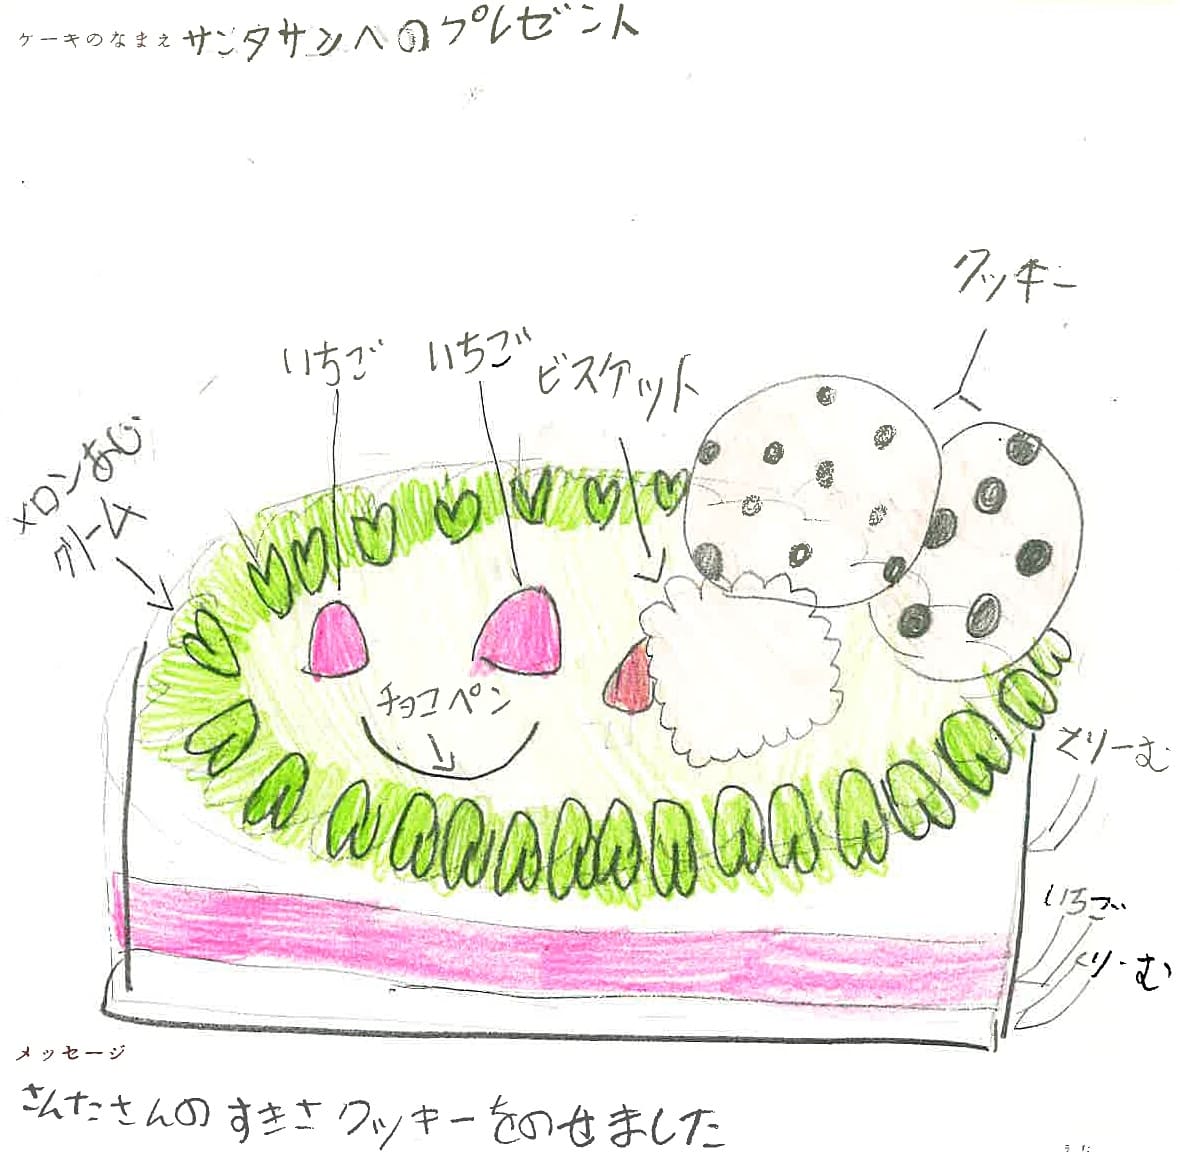 ケーキのなまえ サンタサンへのプレゼント
クッキー
いちご
いちご
ビスケット
メロンあじ
クリーム
チョコペン
くりーむ
いちご
くりーむ
メッセージ
さんたさんのすきさクッキーをのせました